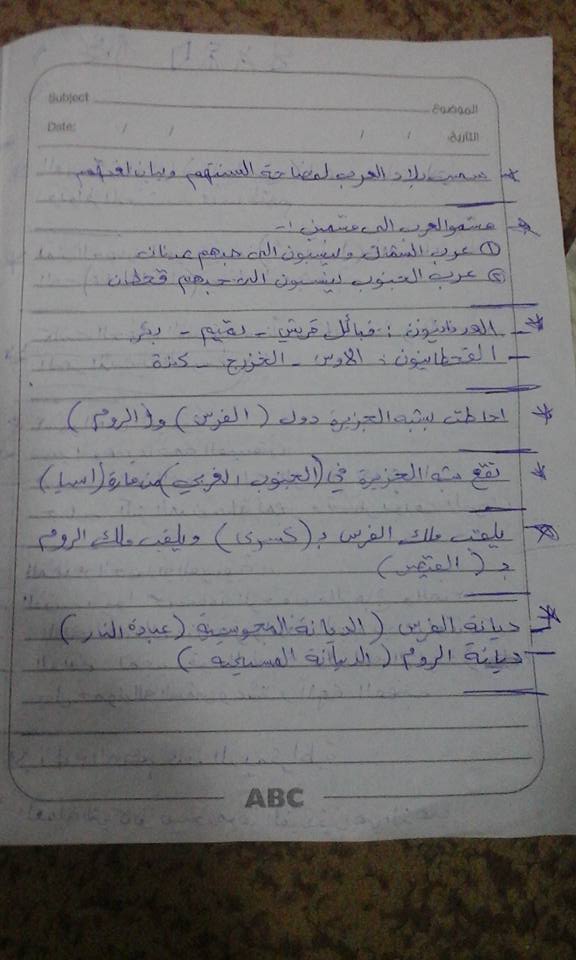 Subject الموضوع
Date: / / / / التاريخ
* سميت بلاد العرب لفصاحة السنتهم وبيان لغتهم
* قسمو العرب الى قسمين :-
① عرب الشمال وينسبون الى جدهم عدنان
② عرب الجنوب ينسبون الى جدهم قحطان
* - العدنانيون : قبائل قريش - تميم - بكر
- القحطانيون : الاوس - الخزرج - كندة
* احاطت بشبه الجزيرة دول ( الفرس ) و( الروم )
* تقع شبه الجزيرة في (الجنوب الغربي) من قارة (اسيا)
* يلقب ملك الفرس بـ ( كسرى ) ويلقب ملك الروم
بـ ( القيصر )
* - ديانة الفرس ( الديانة المجوسية (عبادة النار )
- ديانة الروم ( الديانة المسيحية )
ABC